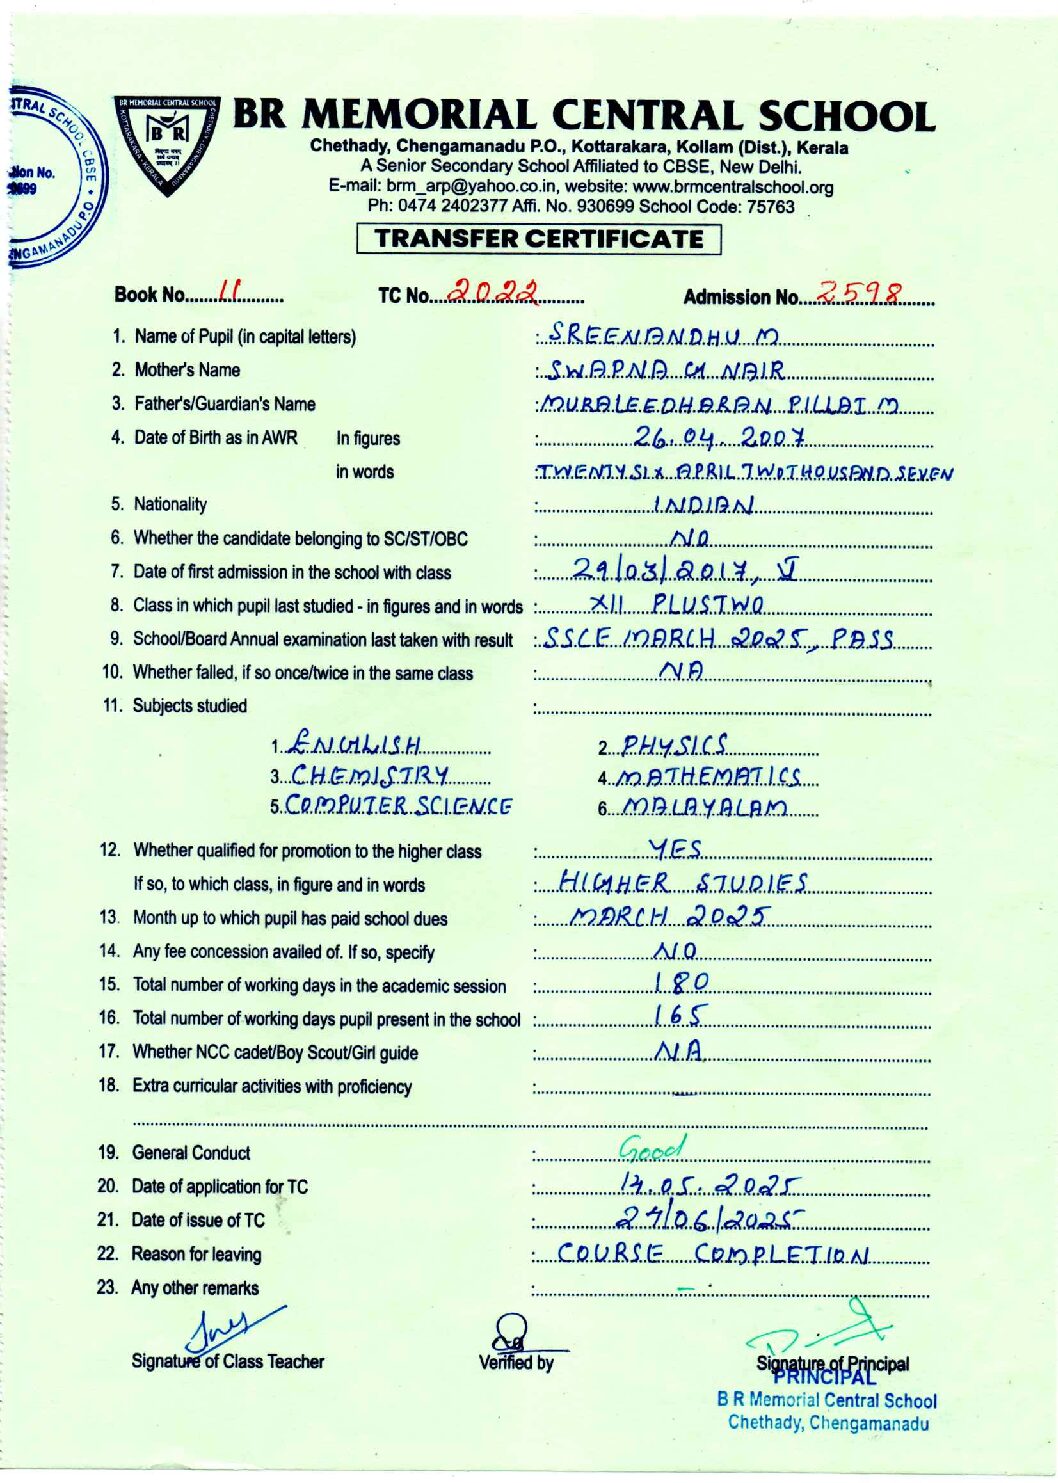 BR MEMORIAL CENTRAL SCHOOL
Chethady, Chengamanadu P.O., Kottarakara, Kollam (Dist.), Kerala
A Senior Secondary School Affiliated to CBSE, New Delhi.
E-mail: brm_arp@yahoo.co.in, website: www.brmcentralschool.org
Ph: 0474 2402377 Affi. No. 930699 School Code: 75763
TRANSFER CERTIFICATE
Book No. 11 TC No. 2022 Admission No. 2598
1. Name of Pupil (in capital letters) : SREENANDHU M
2. Mother's Name : SWAPNA G NAIR
3. Father's/Guardian's Name : MURALEEDHARAN PILLAI M
4. Date of Birth as in AWR In figures : 26.04.2007
in words : TWENTY SIX APRIL TWO THOUSAND SEVEN
5. Nationality : INDIAN
6. Whether the candidate belonging to SC/ST/OBC : NO
7. Date of first admission in the school with class : 29/03/2017, VI
8. Class in which pupil last studied - in figures and in words : XII PLUSTWO
9. School/Board Annual examination last taken with result : SSCE MARCH 2025, PASS
10. Whether falled, if so once/twice in the same class : NA
11. Subjects studied :
1. ENGLISH 2. PHYSICS
3. CHEMISTRY 4. MATHEMATICS
5. COMPUTER SCIENCE 6. MALAYALAM
12. Whether qualified for promotion to the higher class : YES
If so, to which class, in figure and in words : HIGHER STUDIES
13. Month up to which pupil has paid school dues : MARCH 2025
14. Any fee concession availed of. If so, specify : NO
15. Total number of working days in the academic session : 180
16. Total number of working days pupil present in the school : 165
17. Whether NCC cadet/Boy Scout/Girl guide : NA
18. Extra curricular activities with proficiency : —
19. General Conduct : Good
20. Date of application for TC : 14.05.2025
21. Date of issue of TC : 27/06/2025
22. Reason for leaving : COURSE COMPLETION
23. Any other remarks : –
Signature of Class Teacher Verified by Signature of Principal
PRINCIPAL
B R Memorial Central School
Chethady, Chengamanadu